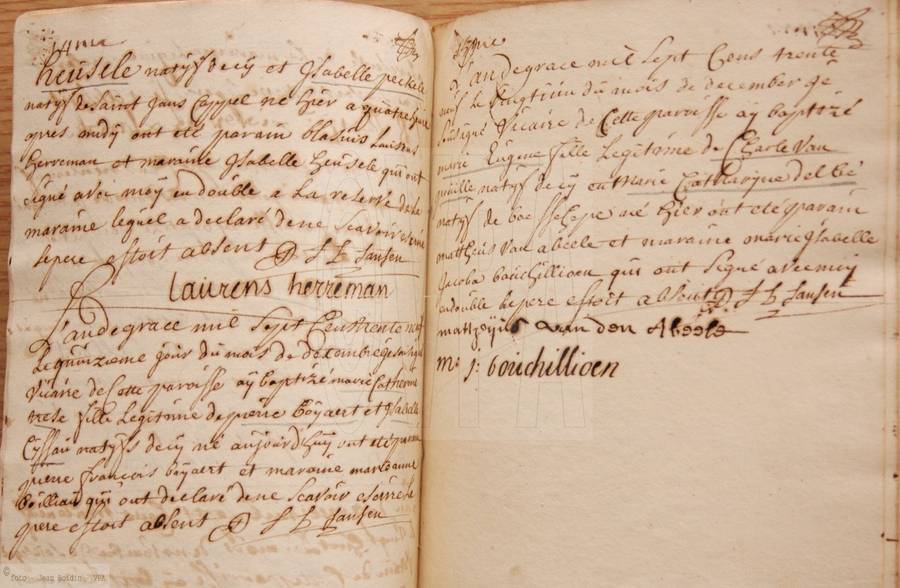 14me
heusele natifs decij et Isabelle peckele
natifs de Saint Jans Cappel né hier a quatre heure
apres midij ont été parain blasius Laurens
herreman et maraine Isabelle heusele qui ont
signé avec moij en double a la reserve de la
maraine lequel a declaré de ne scavoir escrire
le pere estoit absent P J L Jansen
Laurens herreman
L'an de grace mil sept Cens trente neuf
le quinzieme jour du mois de decembre je soussigné
vicaire de Cette paroisse aij baptizé marie Catherine
fille Legitime de pierre Boijaert et Isabelle
natifs decij né aujourd'huij ont été parain
pierre francois boijaert et maraine marie anne
bailliau qui ont declaré de ne scavoir escrire le
pere estoit absent P J L Jansen
15me
L'an de grace mil sept Cens trente
neuf le vingtiem du mois de december je
sousigné vicaire de Cette paroisse aij baptizé
marie Eugene fille Legitime de Charle Van
natifs decij et marie Catharijne del bé
natifs de boesschepe né hier ont été parain
mattheus Van abeele et maraine marie Isabelle
Jacoba bouchillioen qui ont signé avec moij
en double le pere estoit absent P J L Jansen
mattheijus van den Abeele
M: j: bouchillioen
© foto - Jean Boidin - VVA